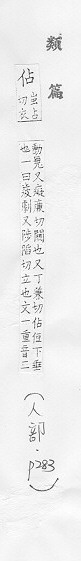 類篇
佔
蚩占
切
動皃又癡廉切闚也又丁兼切佔侸下垂
也一曰疲劇又陟陷切立也文一重音二
(人部．p283)